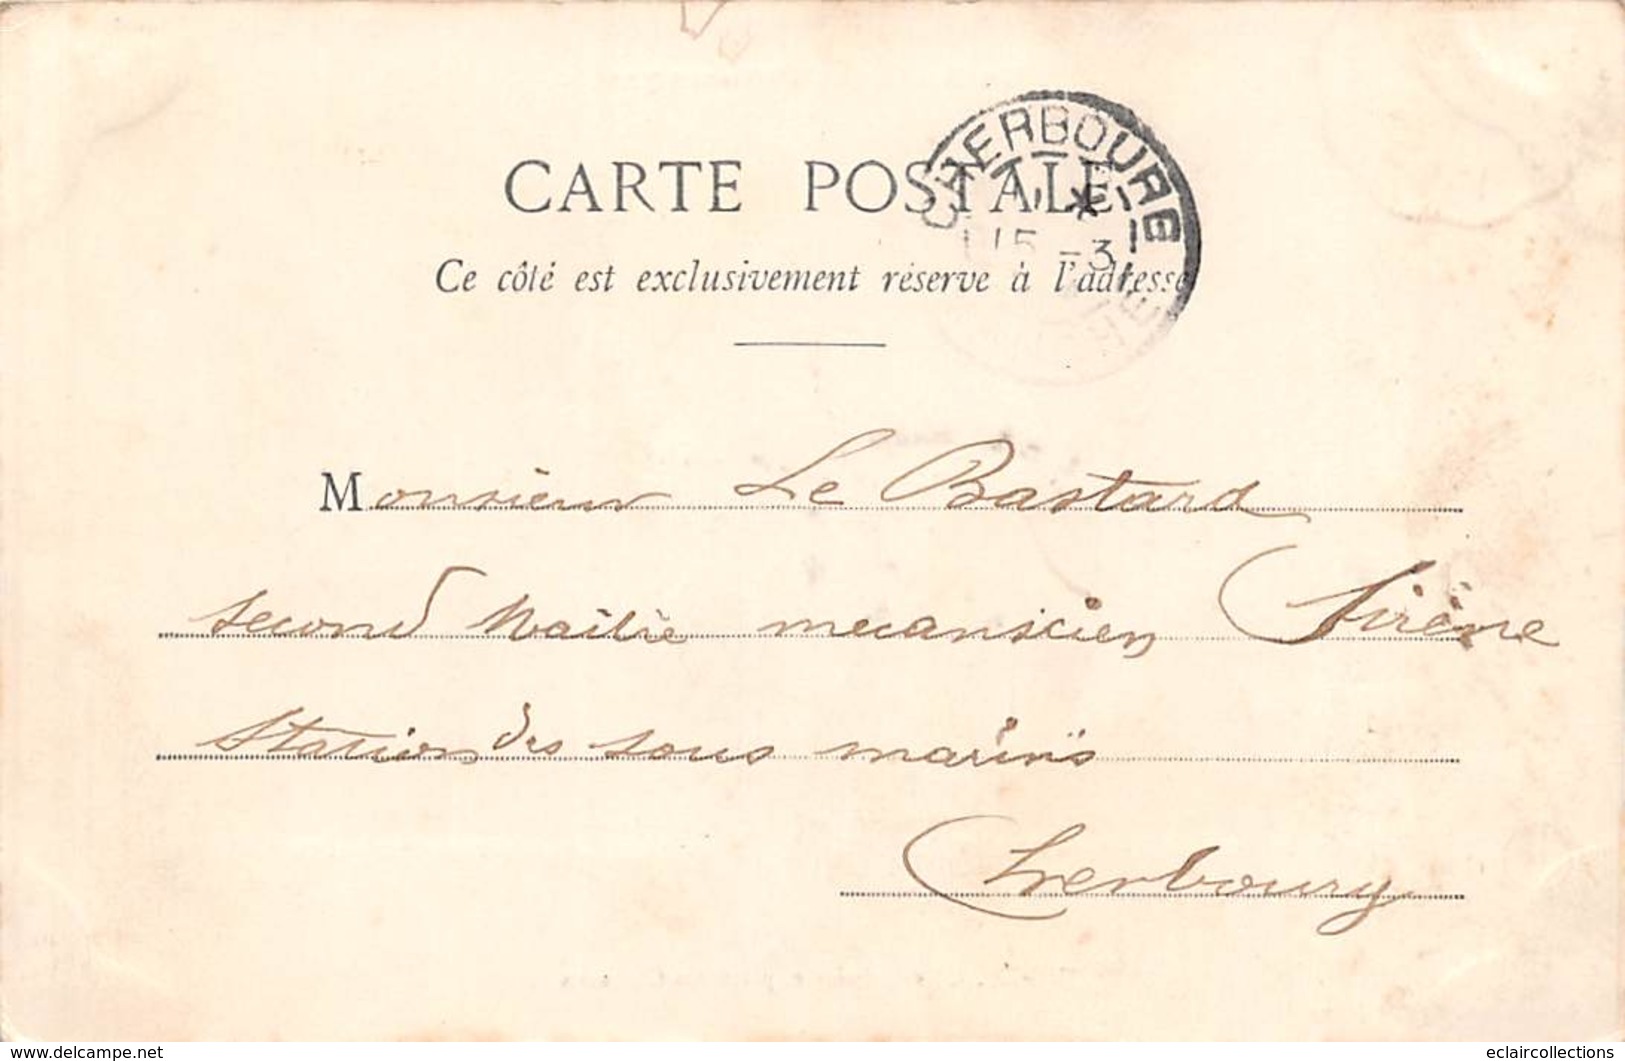 CARTE POSTALE
CHERBOURG
15 -3
Ce côté est exclusivement réservé à l'adresse
Monsieur Le Bastard
second Maître mecanicien Sirène
Station des sous marins
Cherbourg
www.delcampe.net
eclaircollections